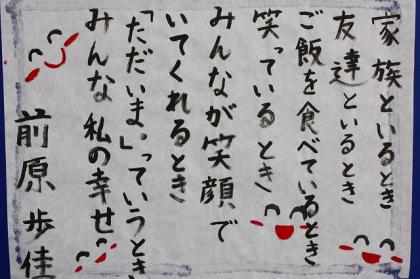 家族といるとき
友達といるとき
ご飯を食べているとき
笑っているとき
みんなが笑顔で
いてくれるとき
「ただいま。」っていうとき
みんな私の幸せ
前原歩佳